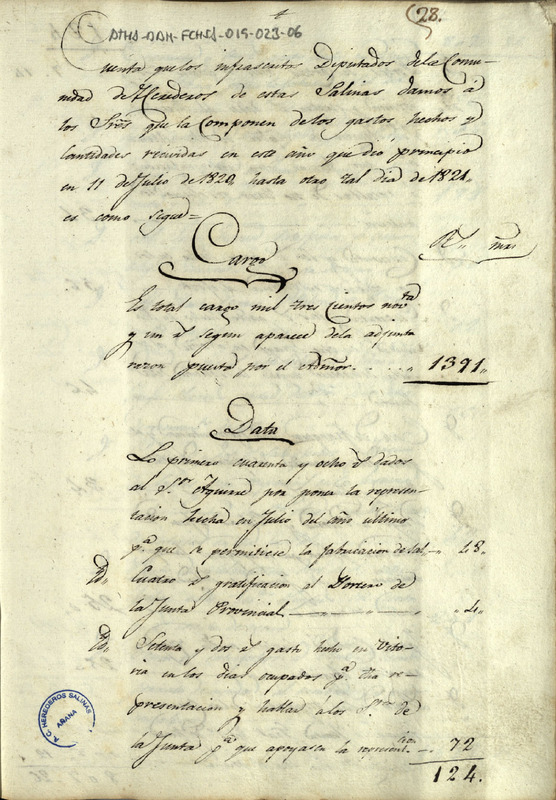 ATHA-DAH-FCHSA-019-023-06
28.
Cuenta que los infrascritos Diputados de la Comu-
nidad de Herederos de estas Salinas damos á
los Sres que la Componen de los gastos hechos y
Cantidades recividas en este año que dió principio
en 11 de Julio de 1820, hasta otro tal dia de 1821,,
es como sigue=
Rs,, mrs
Cargo
Es total cargo mil tres cientos novta
y un rs segun aparece dela adjunta
razon puesta por el Admor. . . . ,, 1391,,
Data
Lo primero cuarenta y ocho rs dados
al Sor Aguirre por poner la represen-
tacion hecha en Julio del año último
pa que se permitiese la fabricacion de sal -,, 48,,
Yd,, Cuatro rs gratificacion al Portero de
la Junta Provincial ,, 4,,
Yd,, Setenta y dos rs gasto hecho en Vito-
ria en los dias ocupados pa dha re-
presentacion y hablar a los Sres de
la Junta pa que apoyasen la representcion -,, 72
124.
A.C. HEREDEROS SALINAS
AÑANA